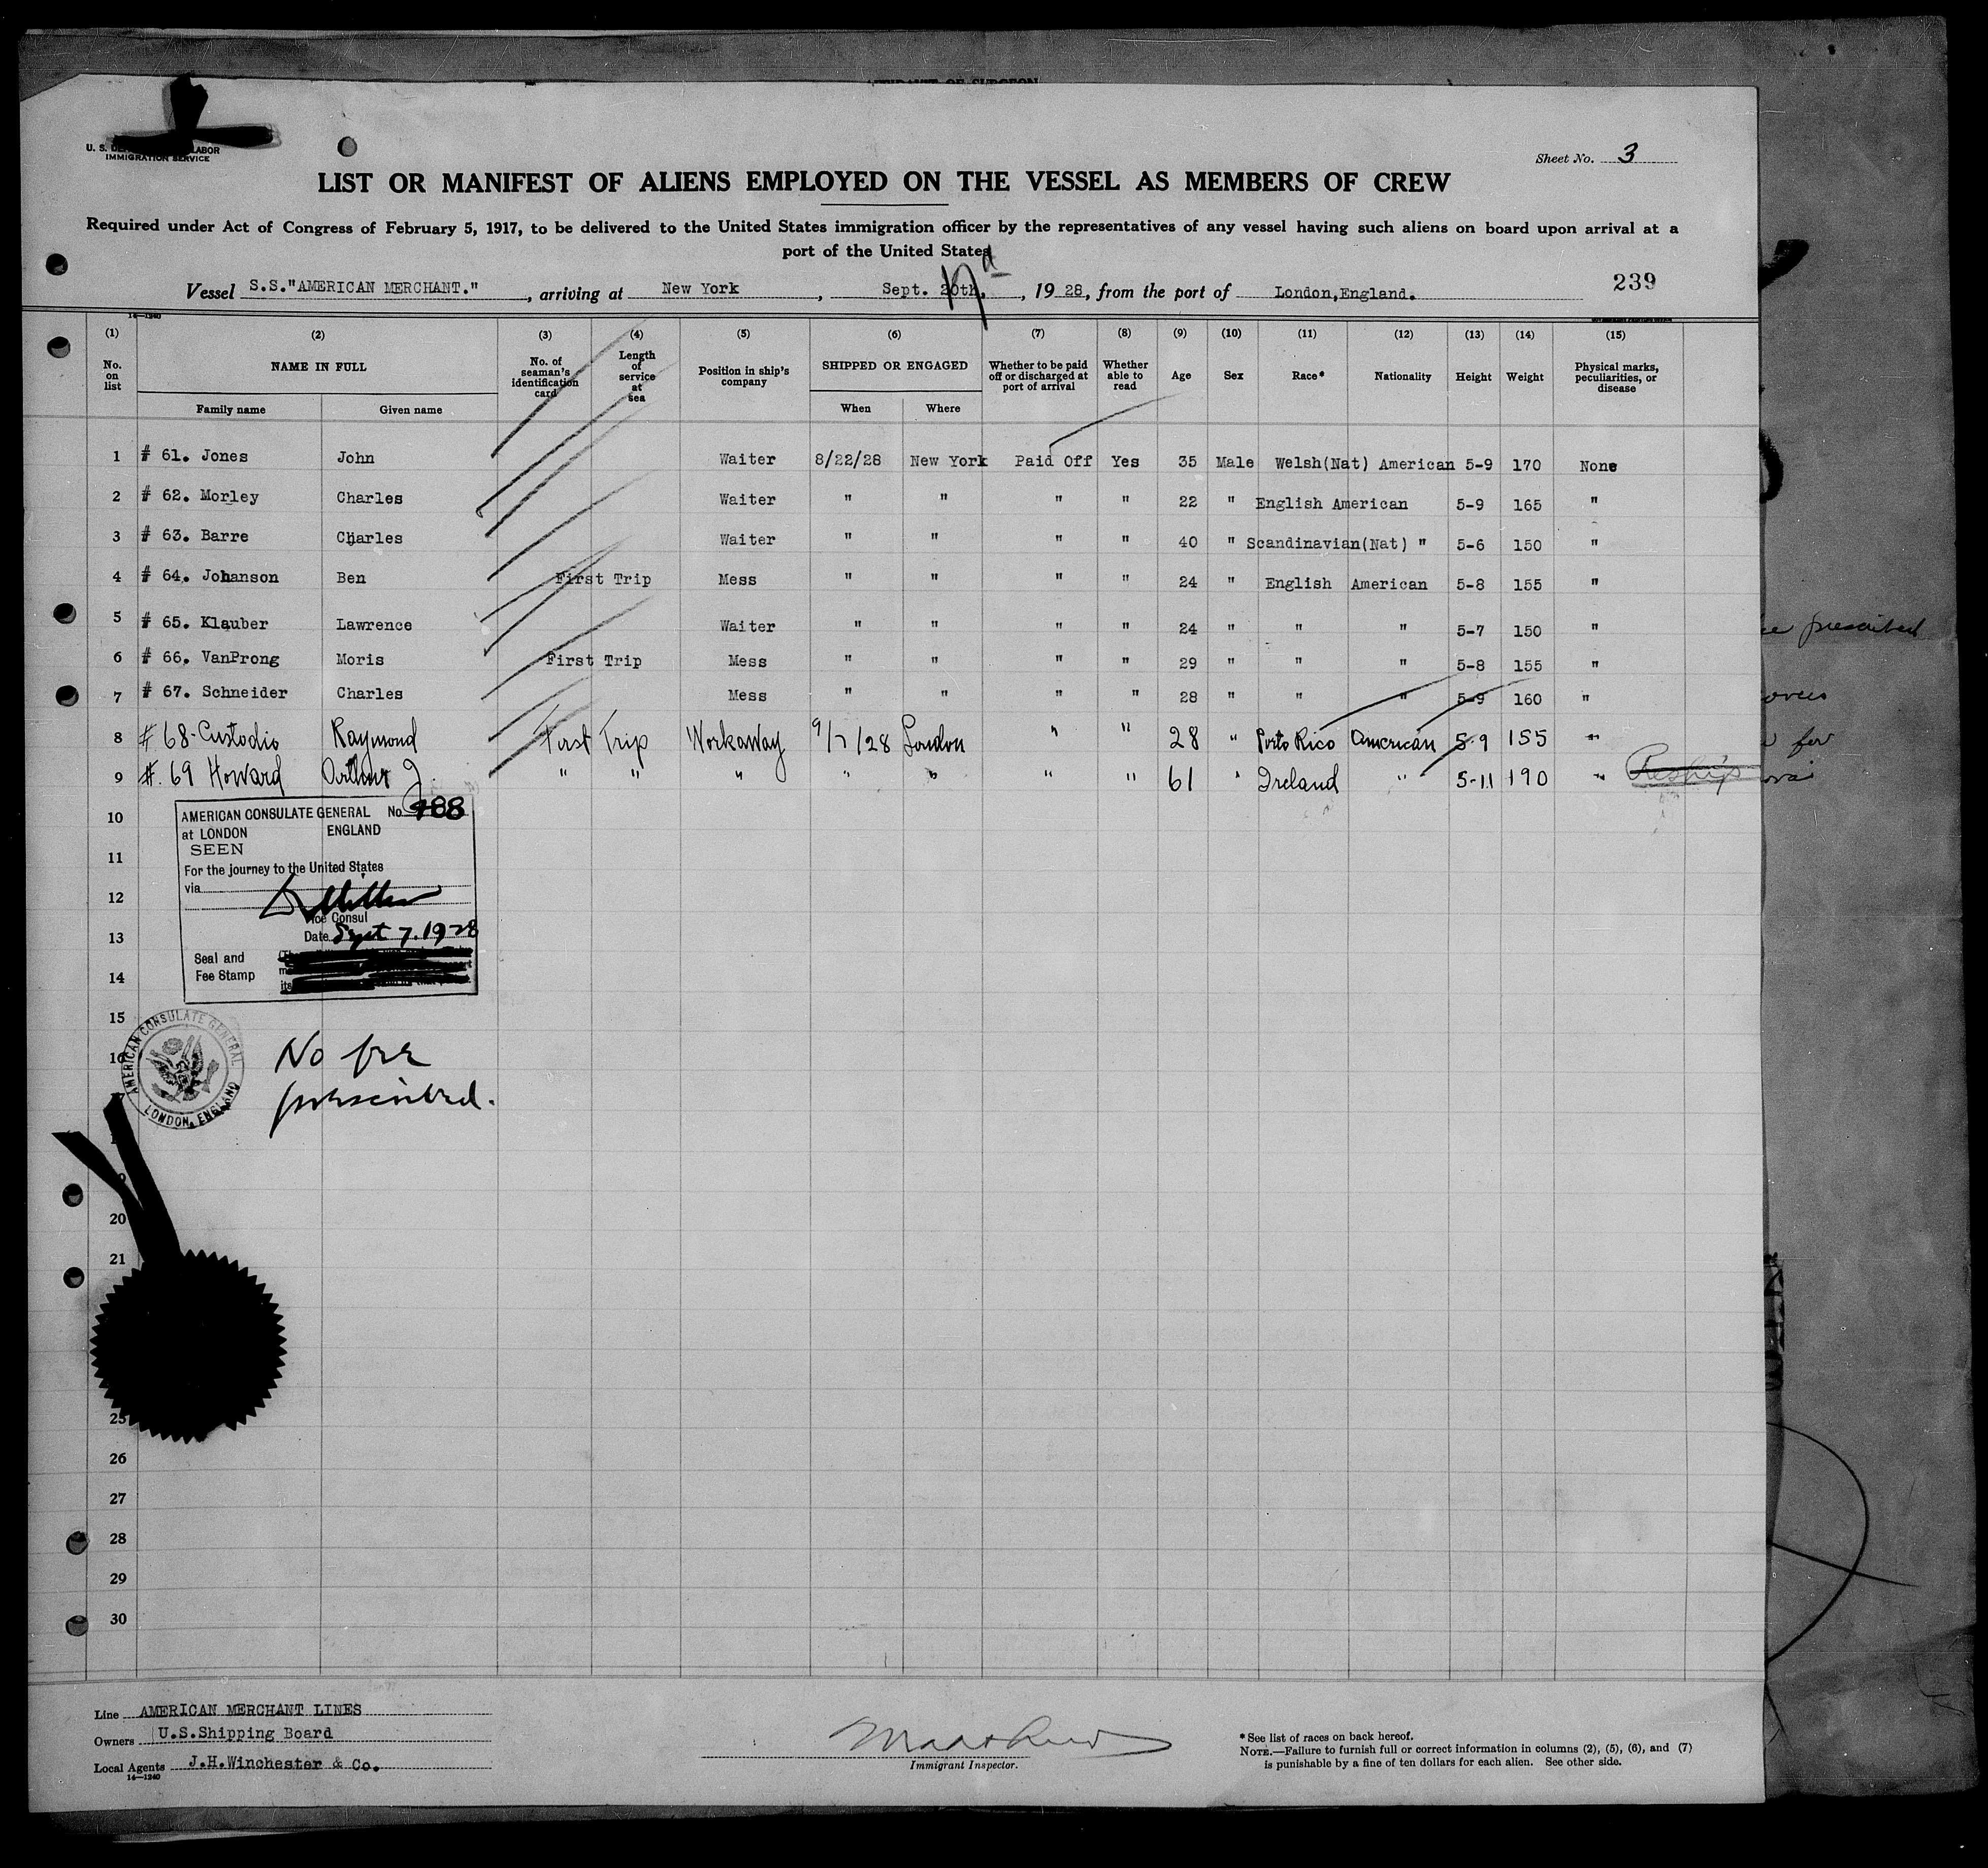 AFFIDAVIT OF SURGEON
U. S. LABOR
IMMIGRATION SERVICE
Sheet No. 3
LIST OR MANIFEST OF ALIENS EMPLOYED ON THE VESSEL AS MEMBERS OF CREW
Required under Act of Congress of February 5, 1917, to be delivered to the United States immigration officer by the representatives of any vessel having such aliens on board upon arrival at a
port of the United States
Vessel S.S."AMERICAN MERCHANT." , arriving at New York , Sept. 20th, , 19 28, from the port of London,England. 239
14—1240
(1) (2) (3) (4) (5) (6) (7) (8) (9) (10) (11) (12) (13) (14) (15)
No. on list NAME IN FULL No. of seaman's identification card Length of service at sea Position in ship's company SHIPPED OR ENGAGED Whether to be paid off or discharged at port of arrival Whether able to read Age Sex Race* Nationality Height Weight Physical marks, peculiarities, or disease
Family name Given name When Where
1 # 61. Jones John Waiter 8/22/28 New York Paid Off Yes 35 Male Welsh(Nat) American 5-9 170 None
2 # 62. Morley Charles Waiter " " " " 22 " English American 5-9 165 "
3 # 63. Barre Charles Waiter " " " " 40 " Scandinavian(Nat) " 5-6 150 "
4 # 64. Johanson Ben First Trip Mess " " " " 24 " English American 5-8 155 "
5 # 65. Klauber Lawrence Waiter " " " " 24 " " " 5-7 150 "
6 # 66. VanProng Moris First Trip Mess " " " " 29 " " " 5-8 155 "
7 # 67. Schneider Charles Mess " " " " 28 " " " 5-9 160 "
8 # 68- Custodio Raymond First Trip Workaway 9/7/28 London " " 28 " Porto Rico American 5-9 155 "
9 #. 69 Howard Arthur J. " " " " " " " 61 " Ireland " 5-11 190 "
10
11
12
13
14
15
16
20
21
25
26
27
28
29
30
AMERICAN CONSULATE GENERAL No. 988
at LONDON ENGLAND
SEEN
For the journey to the United States
via
Vice Consul
Date Sept 7. 1928
Seal and
Fee Stamp
AMERICAN CONSULATE GENERAL
LONDON, ENGLAND
No fee
prescribed.
prescribed
for
Line AMERICAN MERCHANT LINES
Owners U.S.Shipping Board
Local Agents J.H.Winchester & Co.
14—1240
Immigrant Inspector.
* See list of races on back hereof.
NOTE.—Failure to furnish full or correct information in columns (2), (5), (6), and (7)
is punishable by a fine of ten dollars for each alien. See other side.